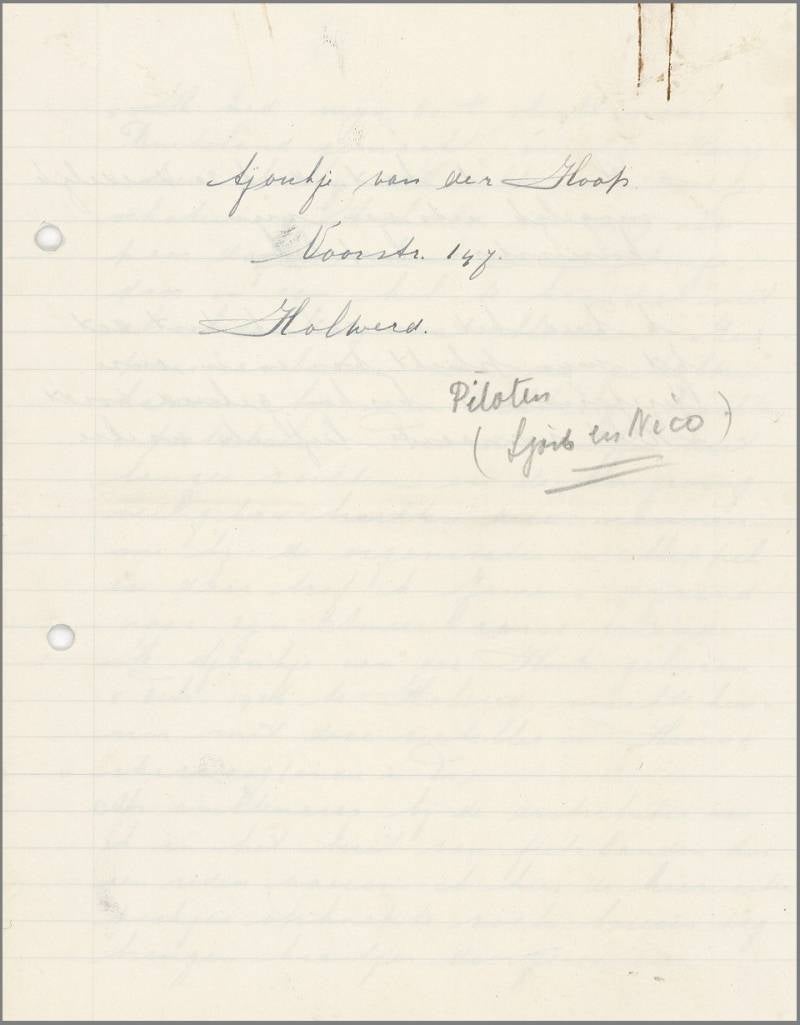 Ajoukje van der Hoop
Voorstr. 147.
Holwerd.
Piloten
( Sjoib en Nico )